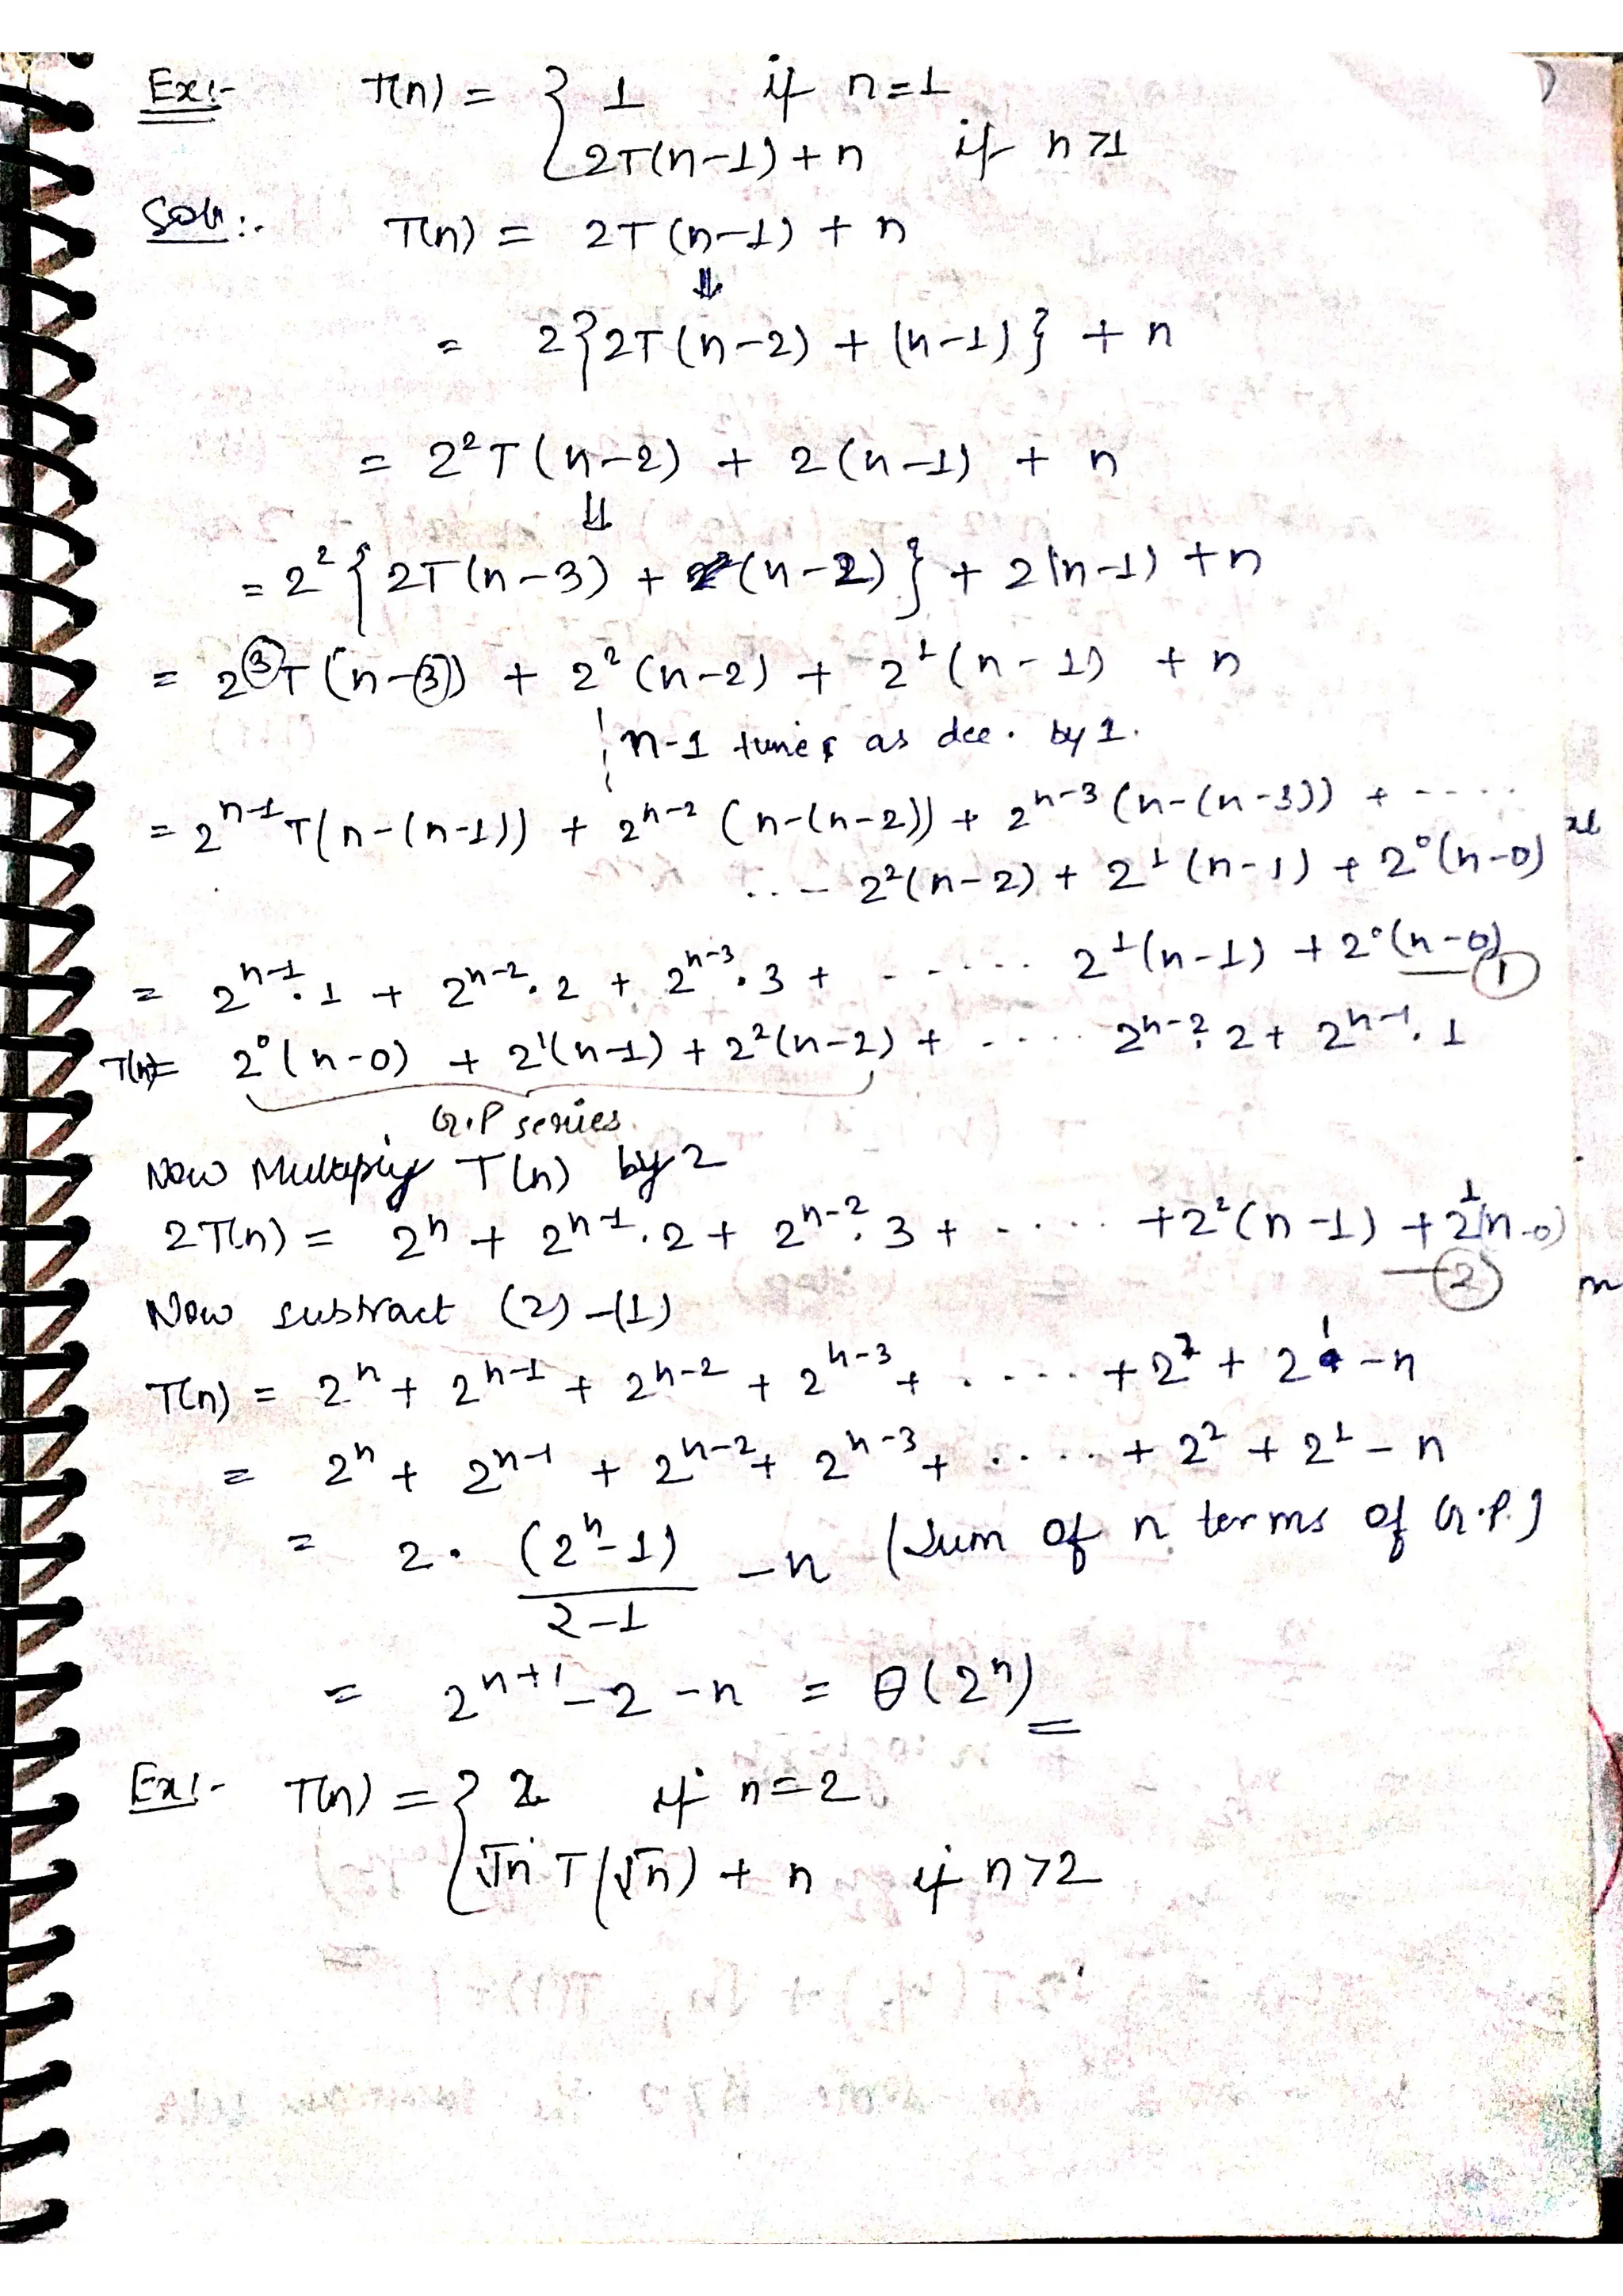 Ex:- T(n) = { 1 if n=1
2T(n-1)+n if n>1
Soln:- T(n) = 2T(n-1) + n
⇓
= 2{2T(n-2) + (n-1)} + n
= 2²T(n-2) + 2(n-1) + n
⇓
= 2²{2T(n-3) + (n-2)} + 2(n-1) + n
= 2³T(n-3) + 2²(n-2) + 2¹(n-1) + n
n-1 times as dec. by 1.
= 2ⁿ⁻¹T(n-(n-1)) + 2ⁿ⁻²(n-(n-2)) + 2ⁿ⁻³(n-(n-3)) + -----
..- 2²(n-2) + 2¹(n-1) + 2⁰(n-0)
= 2ⁿ⁻¹.1 + 2ⁿ⁻².2 + 2ⁿ⁻³.3 + ------ 2¹(n-1) + 2⁰(n-0) —①
T(n)= 2⁰(n-0) + 2¹(n-1) + 2²(n-2) + ----- 2ⁿ⁻².2 + 2ⁿ⁻¹.1
G.P series.
Now Multiply T(n) by 2
2T(n) = 2ⁿ + 2ⁿ⁻¹.2 + 2ⁿ⁻².3 + ----- +2²(n-1) + 2¹(n-0) —②
Now subtract (2)-(1)
T(n) = 2ⁿ + 2ⁿ⁻¹ + 2ⁿ⁻² + 2ⁿ⁻³ + ..... + 2² + 2¹ - n
= 2ⁿ + 2ⁿ⁻¹ + 2ⁿ⁻² + 2ⁿ⁻³ + ..... + 2² + 2¹ - n
= 2. (2ⁿ-1)/(2-1) - n (Sum of n terms of G.P.)
= 2ⁿ⁺¹ - 2 - n = θ(2ⁿ)
Ex:- T(n) = { 2 if n=2
√n T(√n) + n if n>2